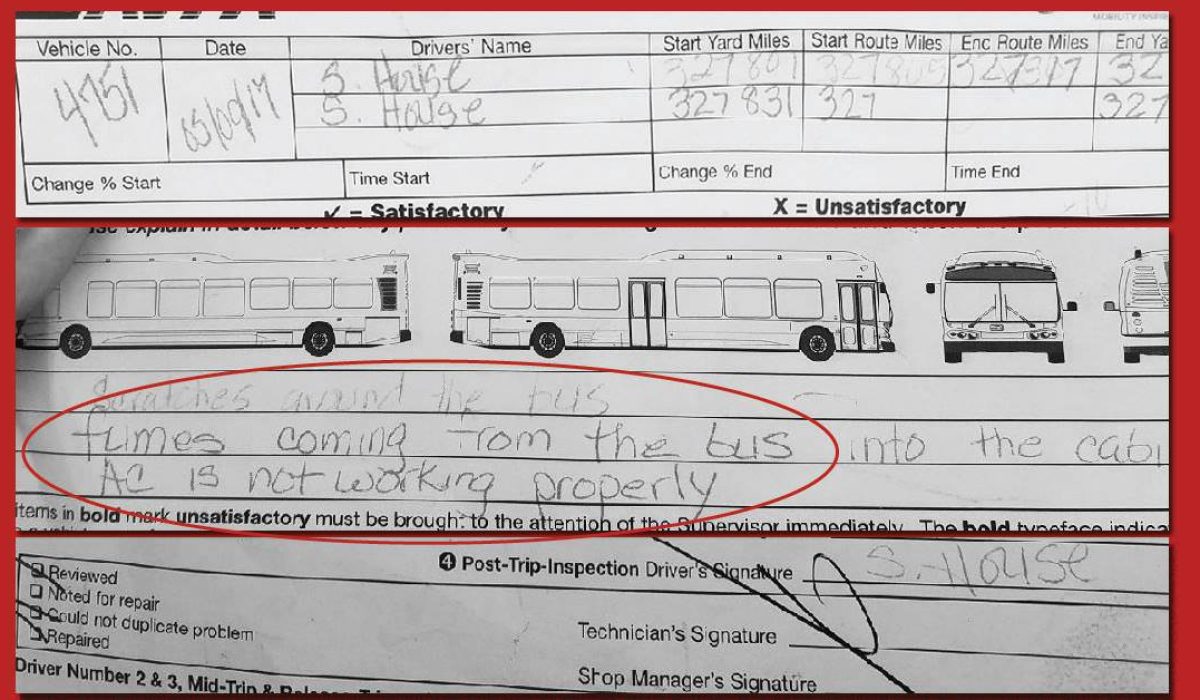 Vehicle No. Date Drivers' Name Start Yard Miles Start Route Miles Enc Route Miles End Ya
4751 05/09/17 S. House 327801 327805 327317 32
S. House 327831 327 327
Change % Start Time Start Change % End Time End
✓ = Satisfactory X = Unsatisfactory
Scratches around the bus
fumes coming from the bus into the cabi
AC is not working properly
items in bold mark unsatisfactory must be brought to the attention of the Supervisor immediately. The bold typeface indica
Reviewed
Noted for repair
Could not duplicate problem
Repaired
4 Post-Trip-Inspection Driver's Signature S. House
Technician's Signature
Shop Manager's Signature
Driver Number 2 & 3, Mid-Trip &